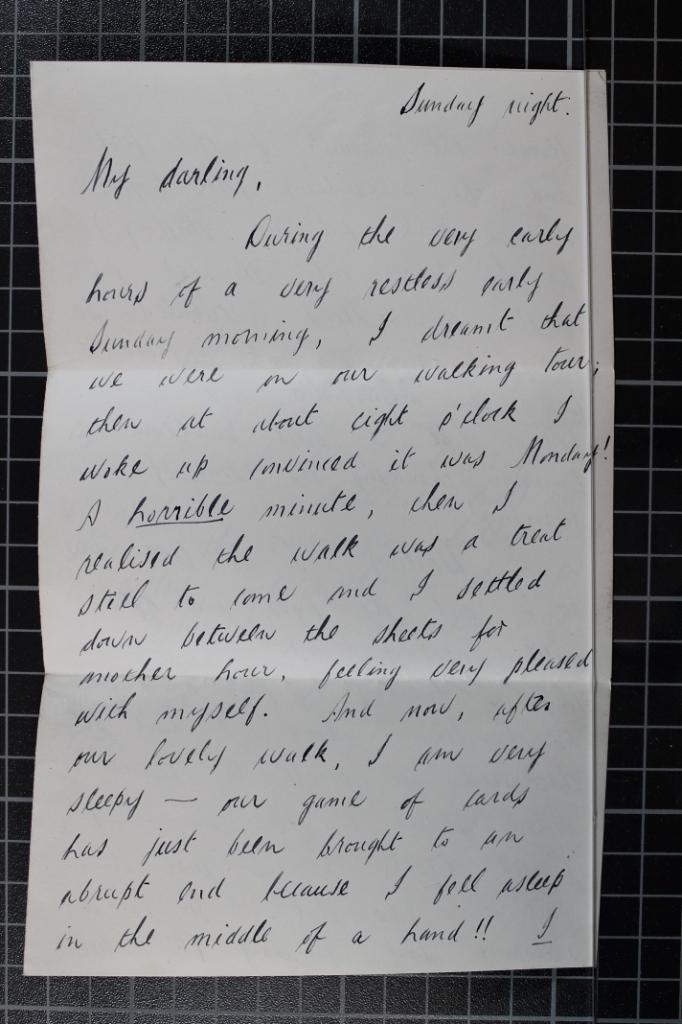 Sunday night.
My darling,
During the very early
hours of a very restless early
Sunday morning, I dreamt that
we were on our walking tour;
then at about eight o'clock I
woke up convinced it was Monday!
A horrible minute, then I
realised the walk was a treat
still to come and I settled
down between the sheets for
another hour, feeling very pleased
with myself. And now, after
our lovely walk, I am very
sleepy — our game of cards
has just been brought to an
abrupt end because I fell asleep
in the middle of a hand!! I